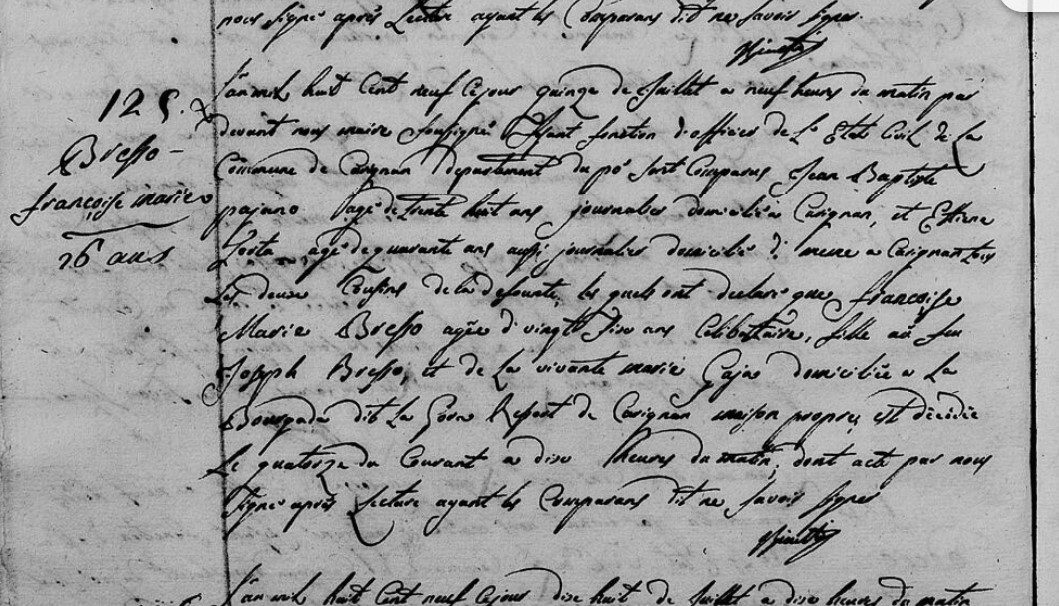 nous signé après Lecture ayant les Comparans dit ne savoir signer
125.
Bresso
françoise marie
26 ans
L'an mil huit Cent neuf Ce jour quinze de Juillet a neuf heures du matin par
devant nous maire soussigné faisant fonction d'officier de L'Etat Civil de La
Commune de Carignan departement du pô sont Comparus Jean Baptiste
pajano agé de Trente huit ans journalier domicilié a Carignan, et Etienne
agé de quarante ans aussi journalier domicilié de meme a Carignan tous
Les deux Cousins de la defunte, les quels ont declaré que françoise
Marie Bresso agée de vingt six ans Celibataire, fille au feu
Joseph Bresso, et de La vivante marie Gaja domiciliée a La
Bourgada dit La Gora Ressort de Carignan maison propre, est décédée
Le quatorze du Courant a dix heures du matin, dont acte par nous
Signé après Lecture ayant les Comparans dit ne savoir signer
L'an mil huit Cent neuf Ce jour dix huit de Juillet a dix heures du matin